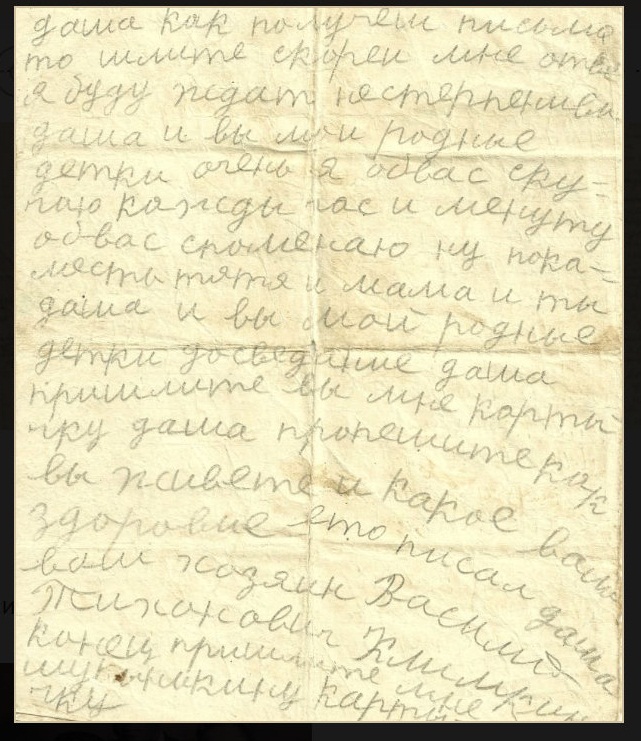 даша как получеш письмо
то шлите скореи мне отве
я буду ждат нестерпениви
даша и вы мои родные
детки очень я обвас ску-
чаю кажды час и менуту
обвас споменаю ну пока-
месть тятя и мама и ты
даша и вы мои родные
детки досведание даша
пришлите вы мне карты
чку даша пропешите как
вы живете и какое ваше
здоровие ето писал даша
ваш хозяин Василий
Тихонович Климкин
конец пришлите мне
карты-
чку